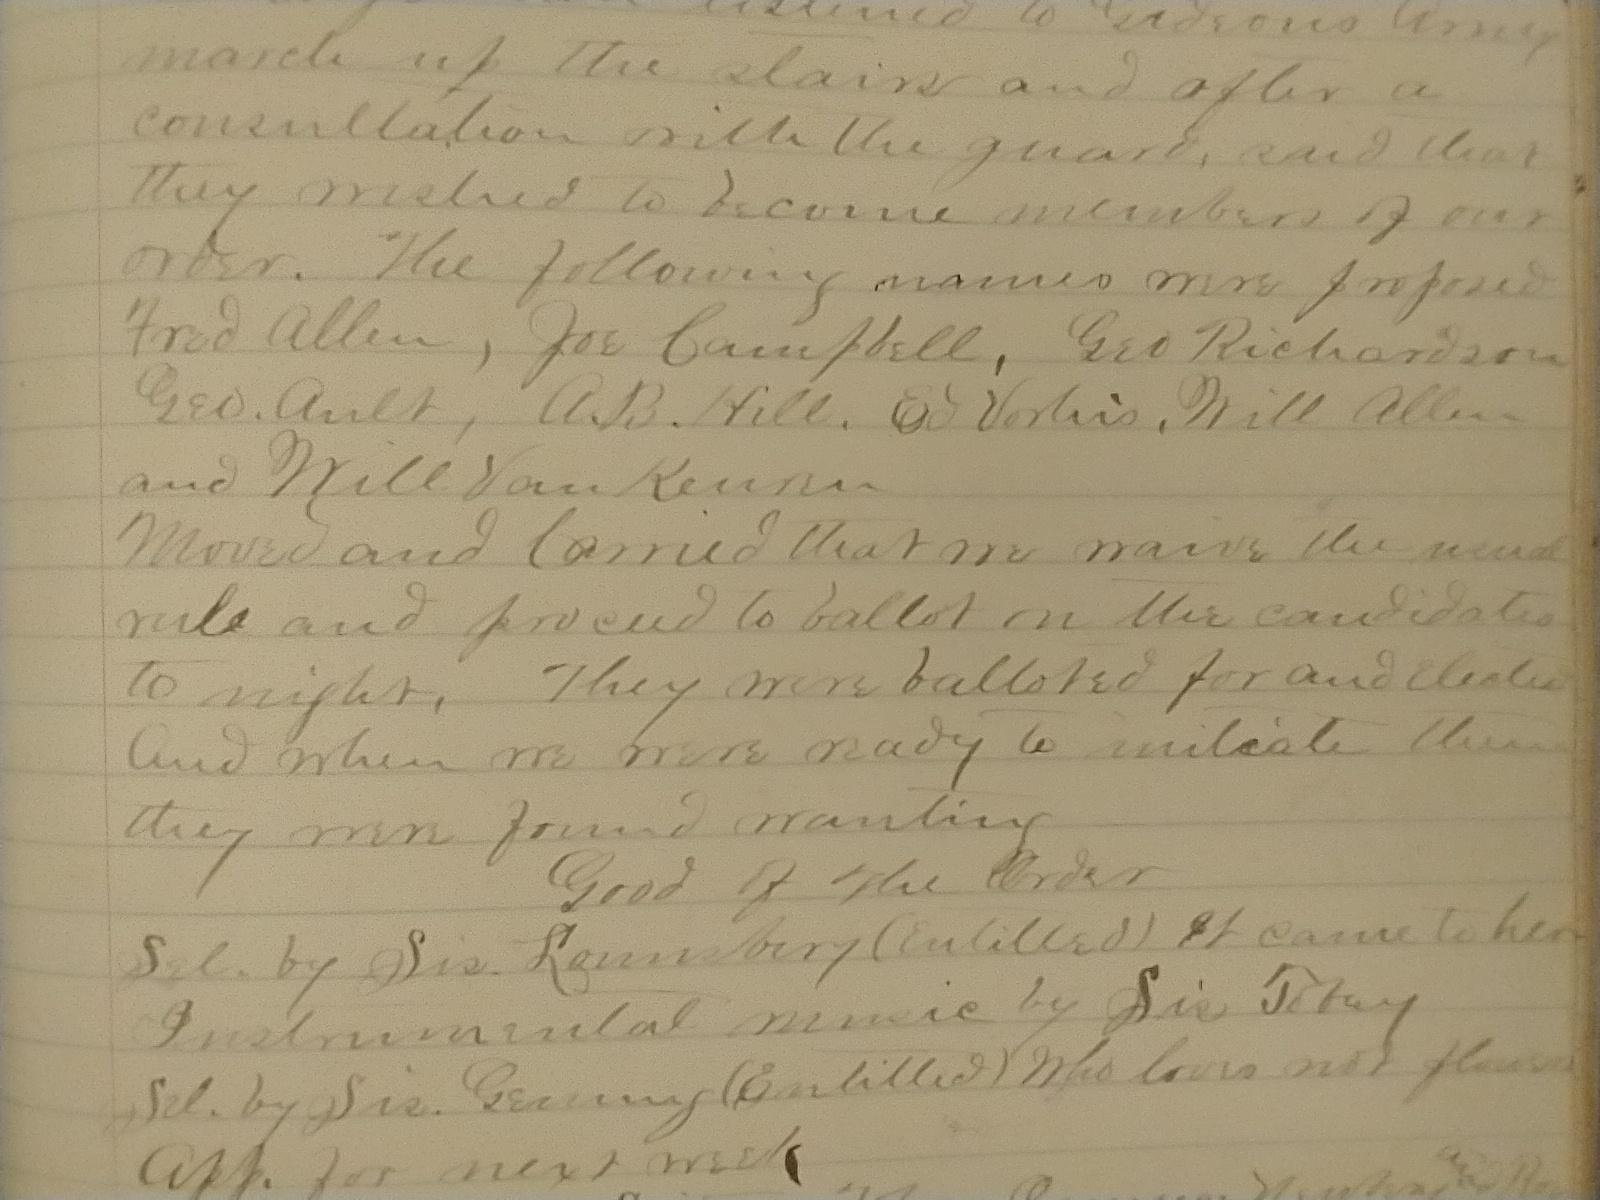 listened to Gideons Army
march up the stairs and after a
consultation with the guard, said that
they wished to become members of our
order. The following names were proposed
Fred Allen, Joe Campbell, Geo Richardson
Geo. Ault, A.B. Hill. Ed Vorhis, Will Allen
and Will Van Keuren
Moved and Carried that we waive the usual
rule and proceed to ballot on the candidates
to night. They were balloted for and elected
And when we were ready to initiate them
they were found wanting
Good of the Order
Sel. by Sis. Lounsbery (Entitled) It came to her
Instrumental music by Sis Tobey
Sel. by Sis. Genung (Entitled) Who loves not flowers
App. for next week